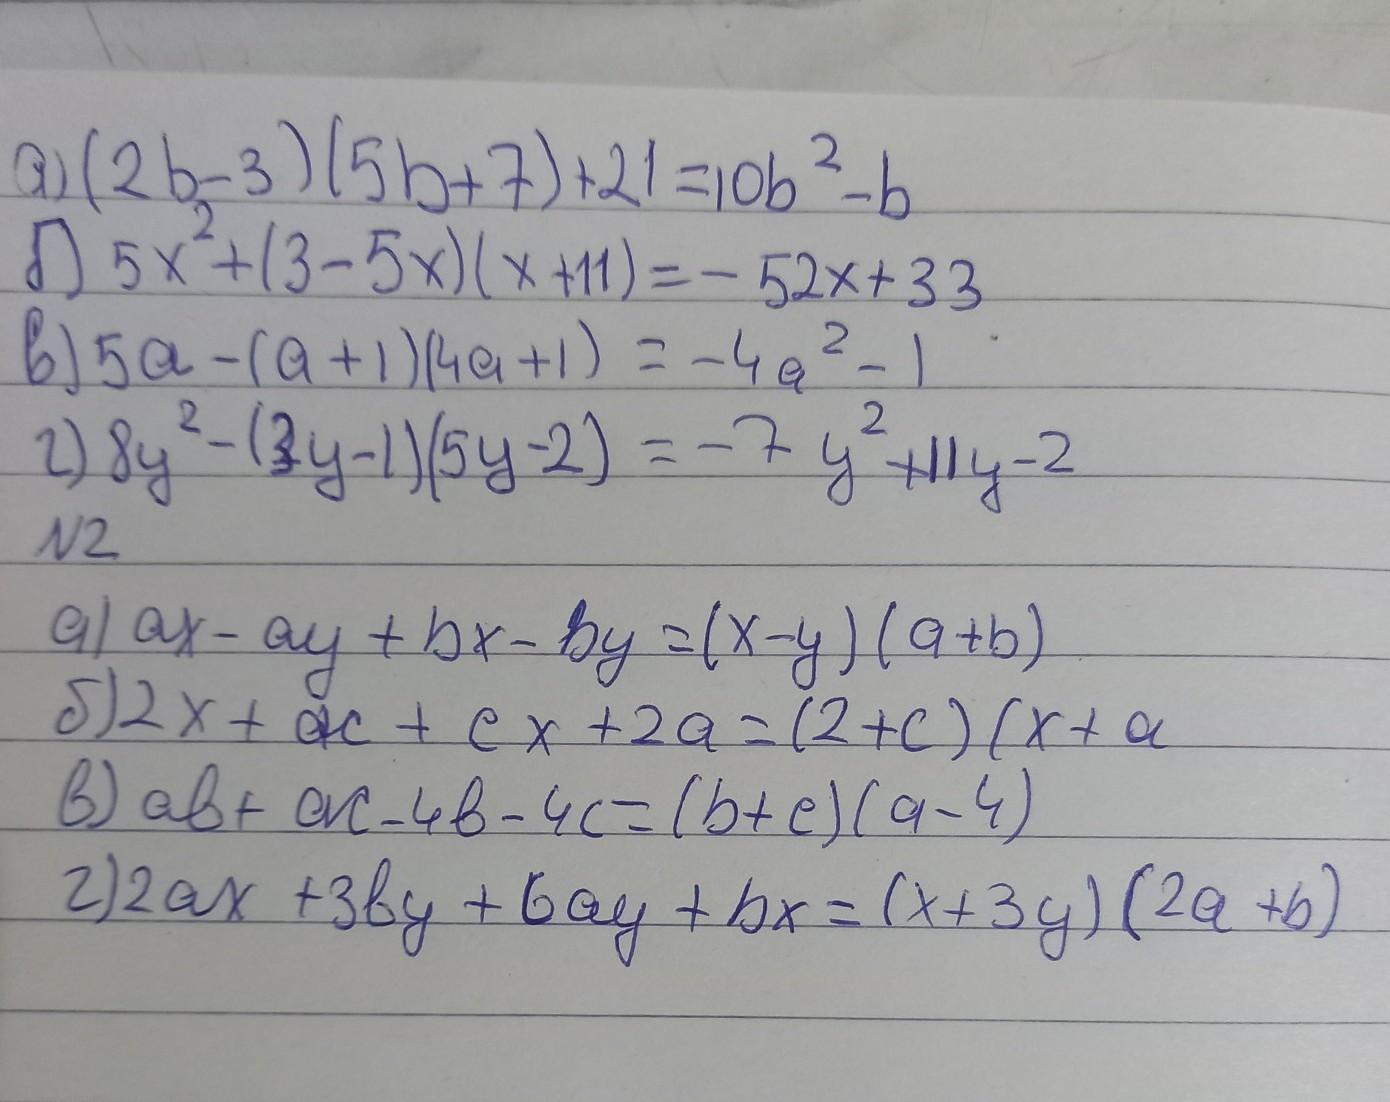 а) (2b-3)(5b+7)+21=10b²-b
б) 5x²+(3-5x)(x+11)=-52x+33
в) 5a-(a+1)(4a+1)=-4a²-1
г) 8y²-(3y-1)(5y-2)=-7y²+11y-2
N2
а) ax-ay+bx-by=(x-y)(a+b)
б) 2x+ac+cx+2a=(2+c)(x+a
в) ab+ac-4b-4c=(b+c)(a-4)
г) 2ax+3by+6ay+bx=(x+3y)(2a+b)